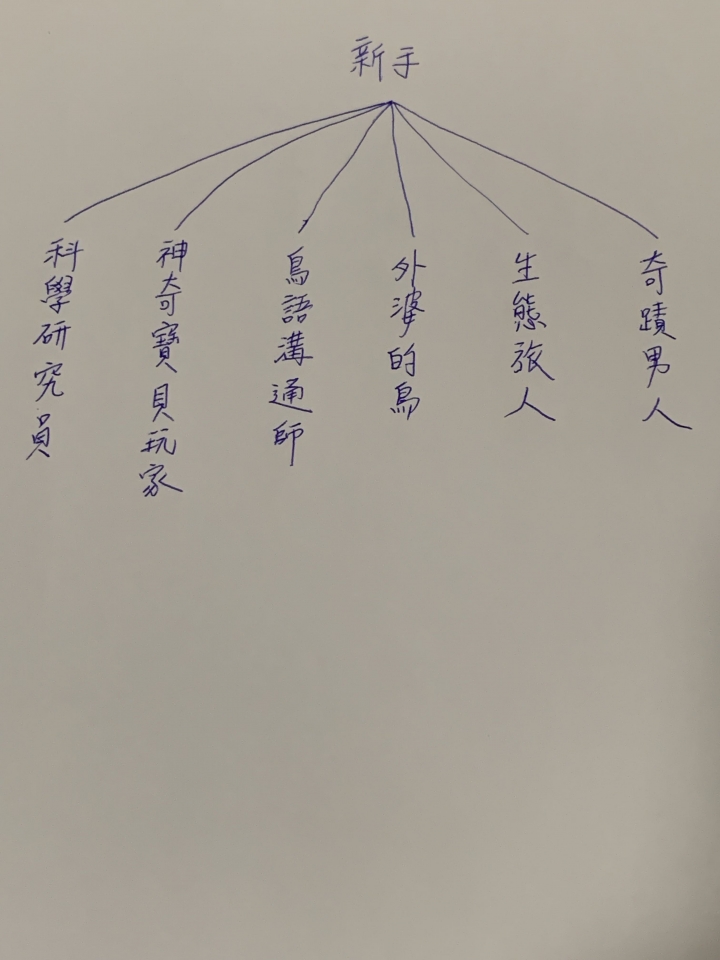 新手
科學研究員
神奇寶貝玩家
鳥語溝通師
外婆的鳥
生態旅人
奇蹟男人